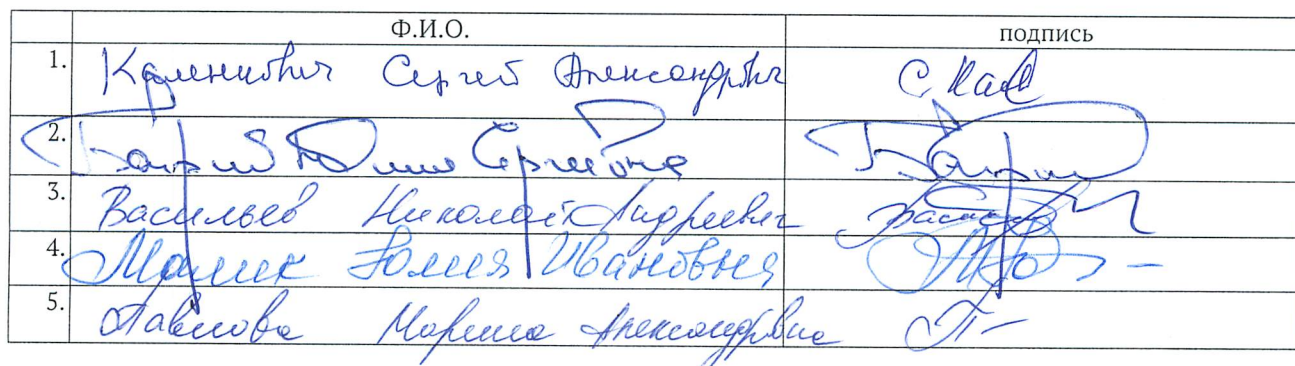 Ф.И.О. подпись
1. Каленкович Сергей Александрович С Кал
2. Юлия Сергеевна
3. Васильев Николай Андреевич
4. Малик Юлия Ивановна
5. Павлова Марина Александровна П-